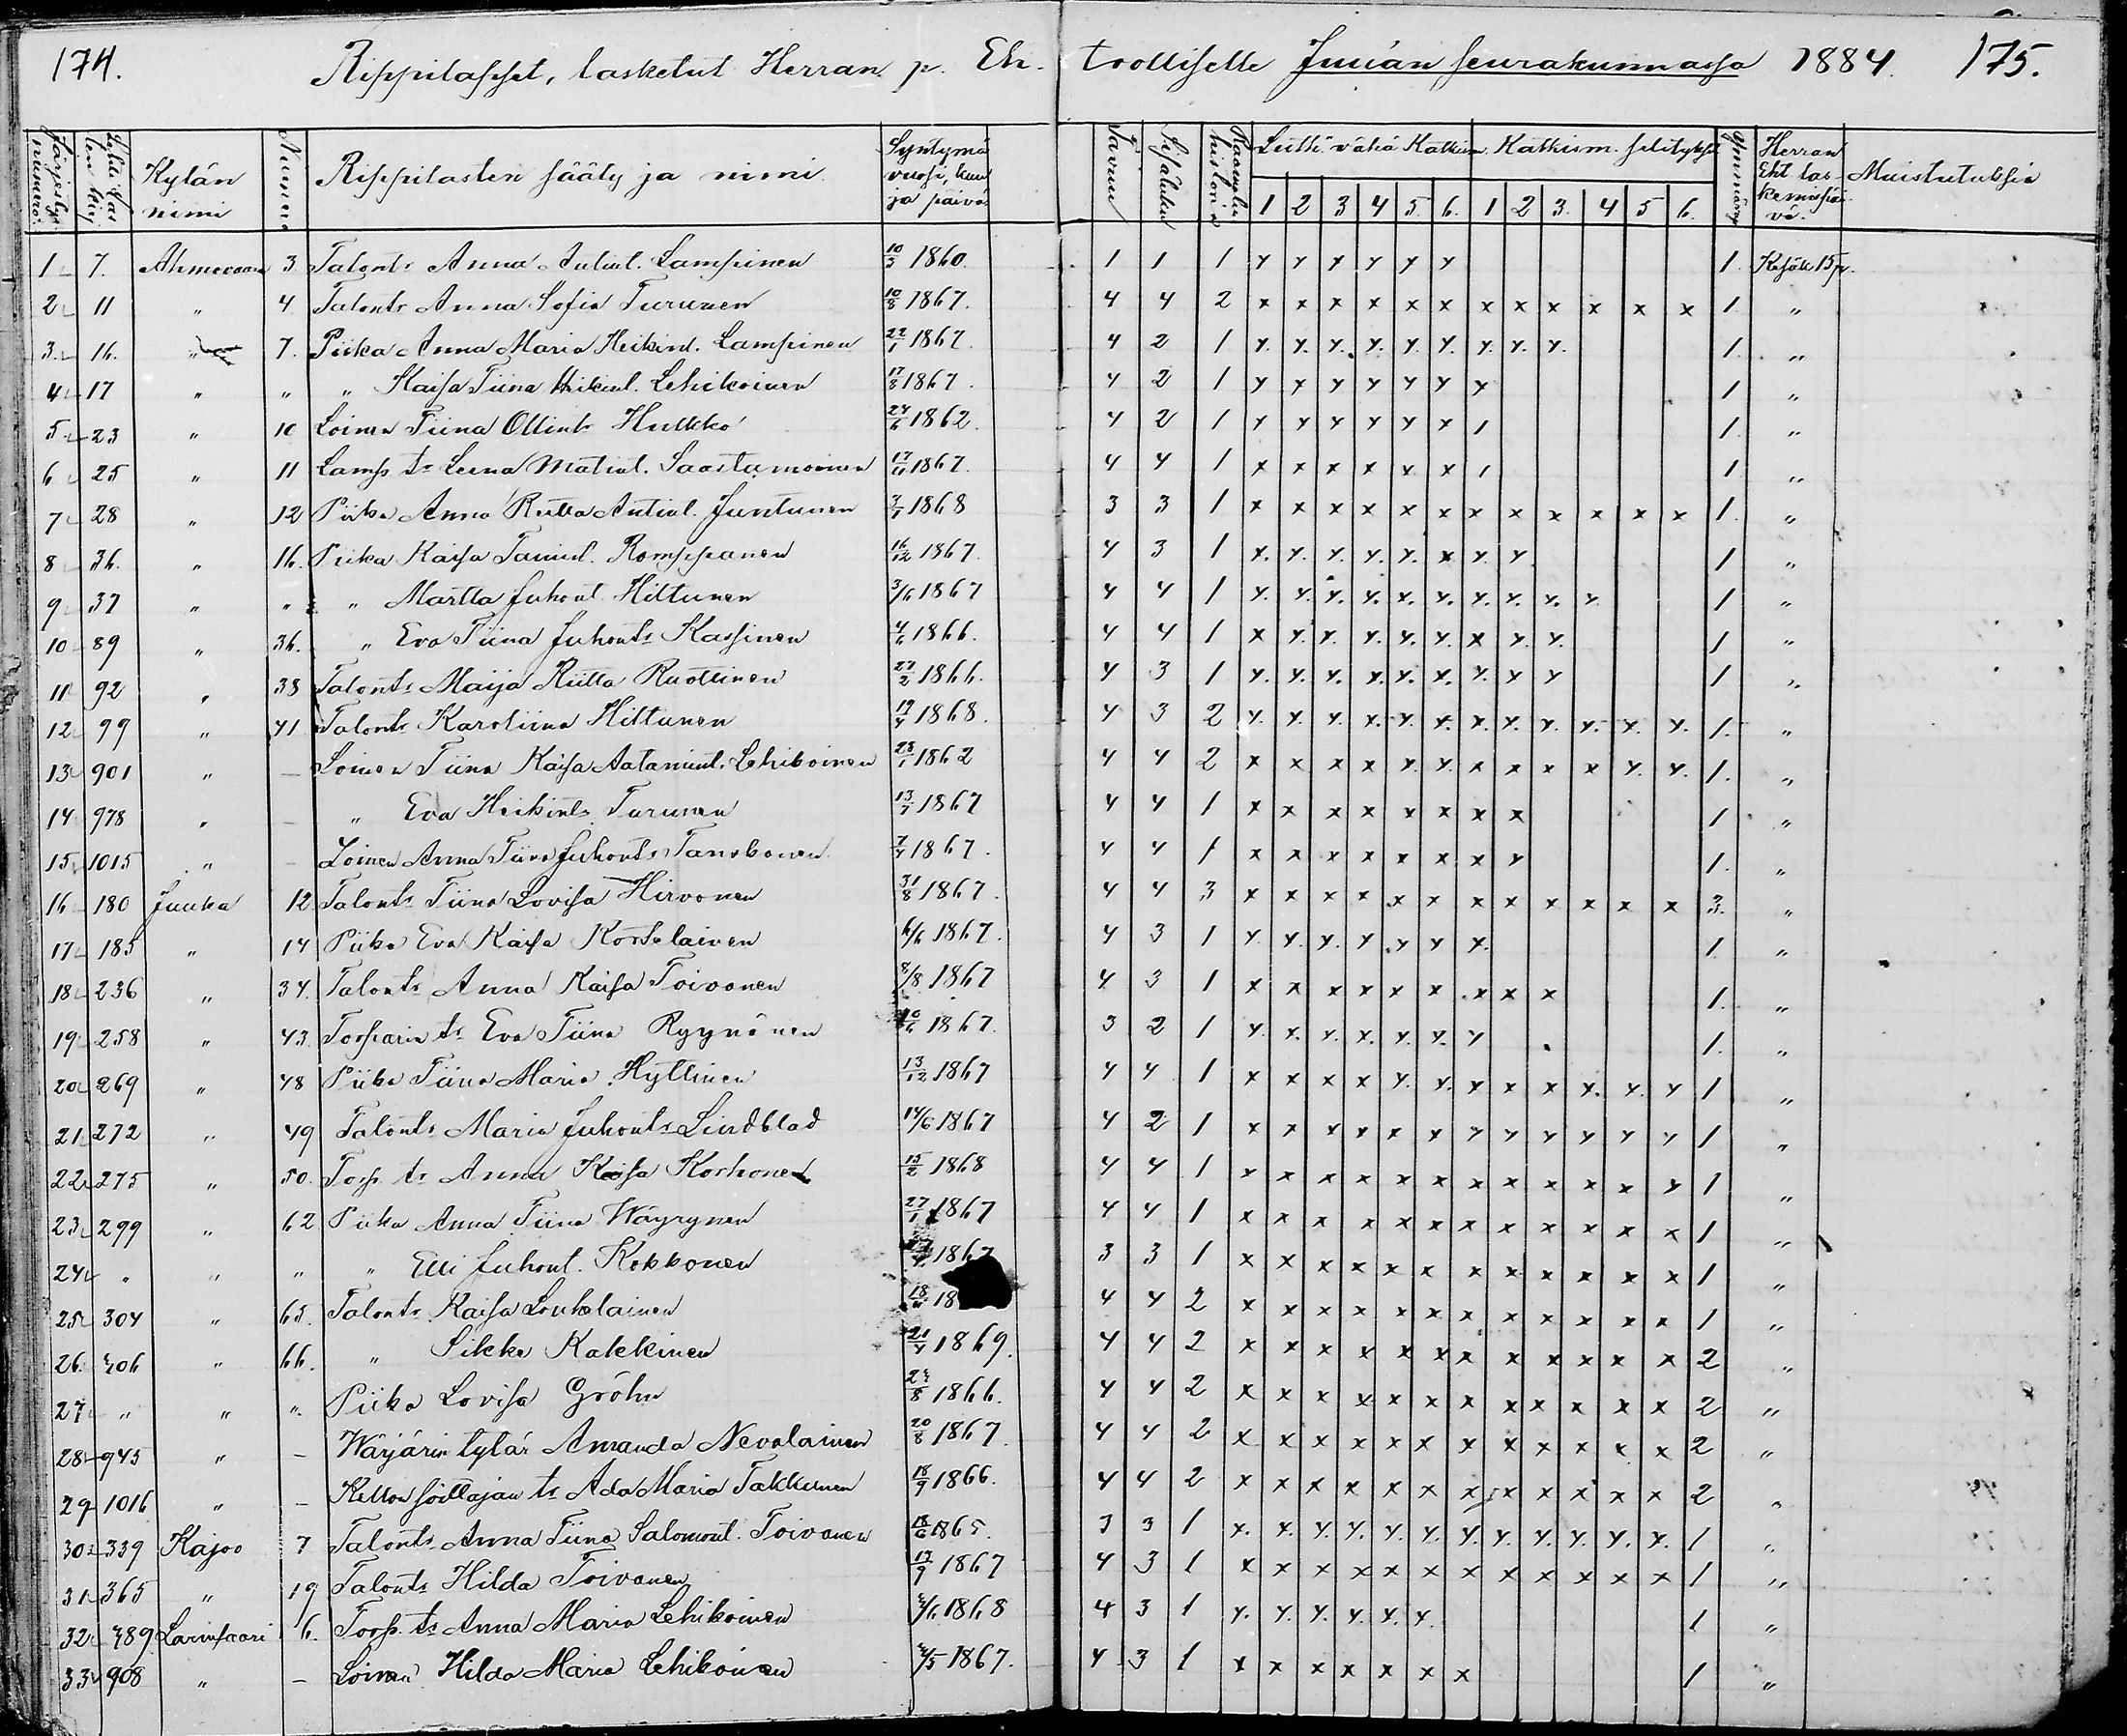 174. Rippilapset, lasketut Herran p. Eh- toolliselle Juuan seurakunnassa 1884. 175.
Järjestys numero. Kylän nimi Numero Rippilasten sääty ja nimi. Syntymä vuosi, kuu ja päivä. Tavuu Sisäluku Raamatu historia Lutth. vähä Katkism. Katkism. selitykset Ymmärrys Herran Eht. las- kemispäi- vä. Muistutuksia
1 2 3 4 5. 6. 1 2 3. 4 5 6.
1 7. Ahmovaara 3 Talonts Anna Antint. Lampinen 10/3 1860. 1 1 1 y y y y y y 1. Kesäk 15 p.
2 11 " 4 Talonts Anna Sofia Turunen 10/8 1867. 4 4 2 x x x x x x x x x x x x 1. "
3. 16. " 7. Piika Anna Maria Heikint. Lampinen 22/1 1867. 4 2 1 y. y. y. y. y. y. y. y. y. 1. "
4 17 " " " Kaisa Tiina Heikint. Lehikoinen 17/8 1867. 4 2 1 y y y y y y y 1 "
5 23 " 10 Loinen Tiina Ollints Hukko 24/6 1862. 4 2 1 y y y y y x 1 1. "
6 25 " 11 Lamp. ts Leena Matint. Saastamoinen 17/11 1867. 4 4 1 x x x x x x 1 1 "
7 28 " 12 Piika Anna Riitta Antint. Juntunen 1868 3 3 1 x x x x x x x x x x x x 1. "
8 36. " 16. Piika Kaisa Tanint. Romppanen 16/12 1867. 4 3 1 x. y. y. y. y. x y. y 1 "
9 37 " " " Martta Juhont. Hiltunen 3/6 1867 4 4 1 y. y. y. y. y. y. y. y. y. y. 1 "
10 89 " 36. " Eva Tiina Juhonts Kassinen 4/6 1866. 4 4 1 x y. y. y. y. y. x y. y. 1 "
11 92 " 38 Talonts Maija Riitta Ruottinen 27/2 1866. 4 3 1 y. y. y. y. y. y. y. y y 1 "
12 99 " 41 Talonts Karoliina Hiltunen 19/4 1868. 4 3 2 y. y. y. y. y. y. x. y. y. y. y. y. 1. "
13 901 " — Loinen Tiina Kaisa Aatamint. Lehikoinen 28/1 1862 4 4 2 x x x x y. y. x x x x y. y. 1. "
14 978 " — " Eva Heikints Turunen 13/7 1867 4 4 1 x x x x x x x x 1 "
15 1015 " — Loinen Anna Tiina Juhonts Tanskanen 7/4 1867. 4 4 1 x x x x x x x y 1. "
16 180 Juuka 12 Talonts Tiina Lovisa Hirvonen 31/8 1867. 4 4 3 x x x x x x x x x x x x 3. "
17 185 " 14 Piika Eva Kaisa Korhelainen 6/6 1867. 4 3 1 y. y. y. y y y y. 1 "
18 236 " 34. Talonts Anna Kaisa Toivonen 8/8 1867 4 3 1 x x x x x x x x x 1. "
19 258 " 43. Torparin ts Eva Tiina Ryynönen 1867. 3 2 1 y. x. y. x. y. y. y 1. "
20 269 " 48 Piika Tiina Maria Hyttinen 13/12 1867 4 4 1 x x x x y. y. y x x y. y. y 1 "
21 272 " 49 Talonts Maria Juhonts Lindblad 14/6 1867 4 2 1 x x y x x x y y y y y y 1 "
22 275 " 50. Torp. ts Anna Kaisa Korhonen 15/2 1868 4 4 1 x x x x x x x x x x x y 1 "
23 299 " 62 Piika Anna Tiina Wäyrynen 27/1 1867 4 4 1 x x x x x x x x x x x x 1 "
24 " " " " Elli Juhont. Kokkonen 1867 3 3 1 x x x x x x x x x x x x 1 "
25 304 " 65. Talonts Kaisa Louhelainen 18 4 4 2 x x x x x x x x x x x x 1 "
26. 306 " 66. " Sikke Kakkinen 21/4 1869. 4 4 2 x x x x x x x x x x x x 2 "
27 " " " Piika Lovisa Gröhn 1866. 4 4 2 x x x x x x x x x x x x 2 "
28 945 " — Wärjärin tytär Amanda Nevalainen 20/8 1867. 4 4 2 x x x x x x x x x x x x 2 "
29 1016 " — Kellon soittajan ts Ada Maria Takkunen 18/9 1866. 4 4 2 x x x x x x x x x x x x 2 "
30 339 Kajoo 7 Talonts Anna Tiina Salomont. Toivanen 18/6 1865. 3 3 1 x. y. y. y. y. y. y. y. y. y. y. x. 1. "
31 365 " 19 Talonts Hilda Toivanen 1867 4 3 1 x x x x x x x x x x x x 1 "
32 389 Larinsaari 6. Torp. ts Anna Maria Lehikoinen 1868 4 3 1 y. y. y. y. y. y. 1 "
33 908 " — Loinen Hilda Maria Lehikoinen 1867. 4 3 1 x x x x x x x 1 "